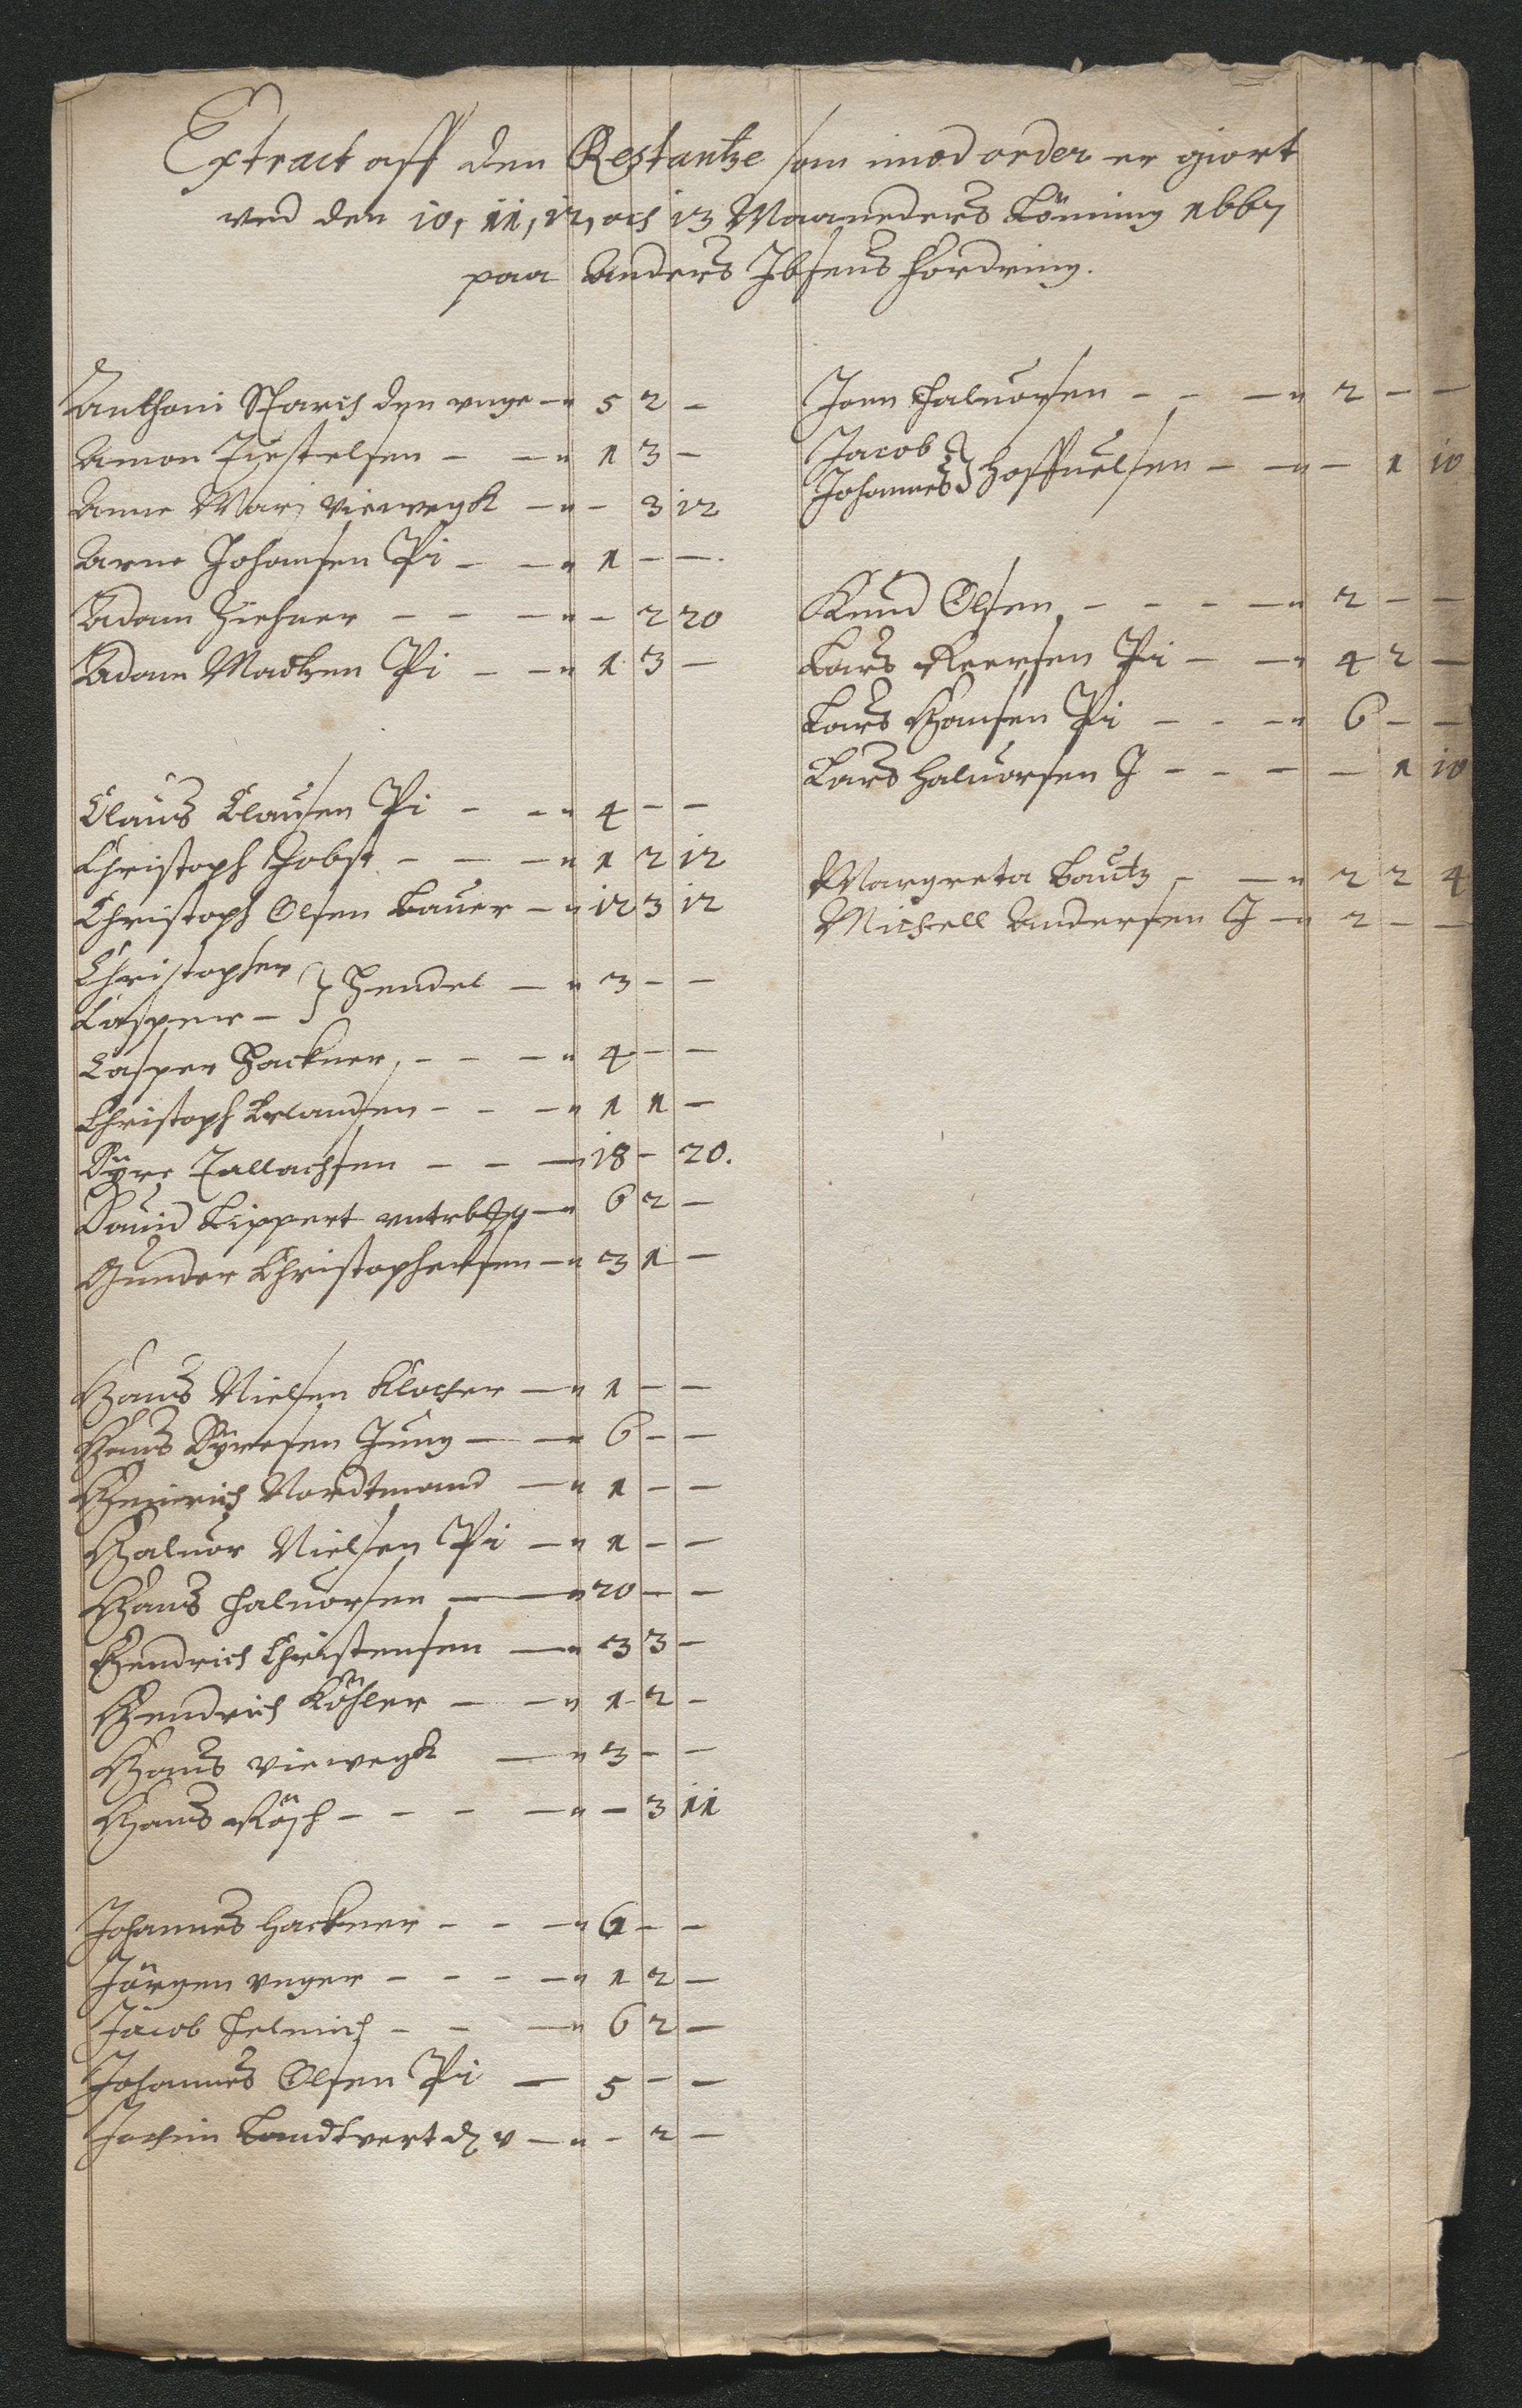 Extract aff den Restantze som imod order er giort
ved den 10, 11, 12, och 13 Maaneders Lönning 1667
paa Anders Ibsens fordring.
Anthoni Starch den unge — " 5 2 —
Amon Kiestelsen — — " 1 3 —
Anne Mari Vieweg — " — 3 12
Arne Johansen Pi — — " 1 — —
Adam Ziehner — — — " — 2 20
Adam Madtzen Pi — — " 1 3 —
Claus Clausen Pi — — " 4 — —
Christoph Jobst — — — " 1 2 12
Christoph Olsen Bauer — " 12 3 12
Christopher
Casper — } Hendel — " 3 — —
Casper Hackner — — — " 4 — —
Christoph Erlandsen — — — " 1 1 —
Dyre Tallachsen — — — 18 — 20.
David Lippert — " 6 2 —
Gunder Christophersen — " 3 1 —
Hans Nielsen Klocher — " 1 — —
Hans Dyresen Jung — — 6 — —
Heinrich Nordtmand — " 1 — —
Haluor Nielsen Pi — " 1 — —
Hans Haluorsen — — " 20 — —
Hendrich Christensen — " 3 3 —
Hendrich Köhler — — " 1 2 —
Hans Vieweg — " 3 — —
Hans Rösch — — — — " — 3 11
Johannes Hackner — — — " — —
Jörgen Unger — — — — " 1 2 —
Jacob Helmich — — — " 6 2 —
Johannes Olsen Pi — 5 — —
Jochim Landtvert d v — " — 2 —
Joen Haluorsen — — — " 2 — —
Jacob
Johannes } Hoffuelsen — — " — 1 10
Knud Olsen — — — — " 2 — —
Lars Reersen Pi — — " 4 2 —
Lars Hansen Pi — — — " 6 — —
Lars Haluorsen J — — — — 1 10
Margreta Bautz — — " 2 2 4
Michell Andersen J — " 2 — —